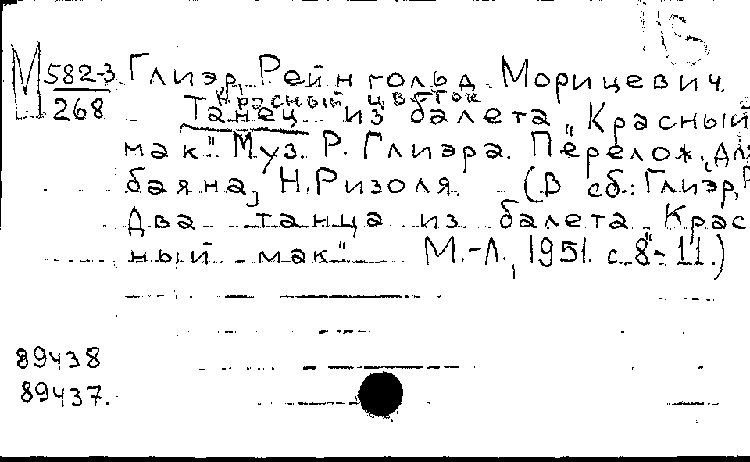 М 582-3 Глиэр, Рейнгольд Морицевич.
"Красный цветок
268 Танец из балета „Красный
мак". Муз. Р. Глиэра. Перелож. для
баяна, Н. Ризоля. (В сб.: Глиэр, Р.
Два танца из балета „Крас
ный мак" М.-Л., 1951. с. 8-11.)
89438
89437.